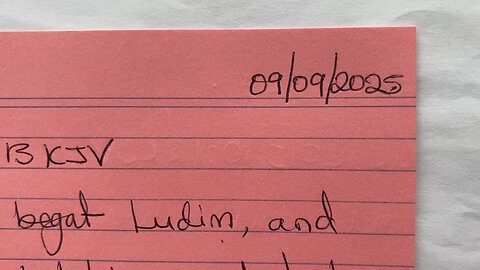 09/09/2025
13 KJV
begat Ludim, and